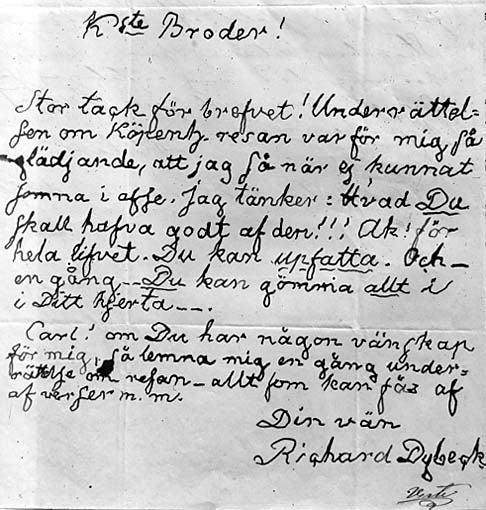 Kste Broder!
Stor tack för brefvet! Underrättel=
sen om Köpenh. resan var för mig så
glädjande, att jag så när ej kunnat
somna i afse. Jag tänker: Hvad Du
skall hafva godt af den!!! Ak! för
hela lifvet. Du kan upfatta. Och –
en gång – – Du kan gömma allt i
i Ditt hjerta – –.
Carl! om Du har någon vänskap
för mig, så lemna mig en gång under=
rättse om resan – allt som kan fäs af
af verser m. m.
Din vän
Richard Dybeck